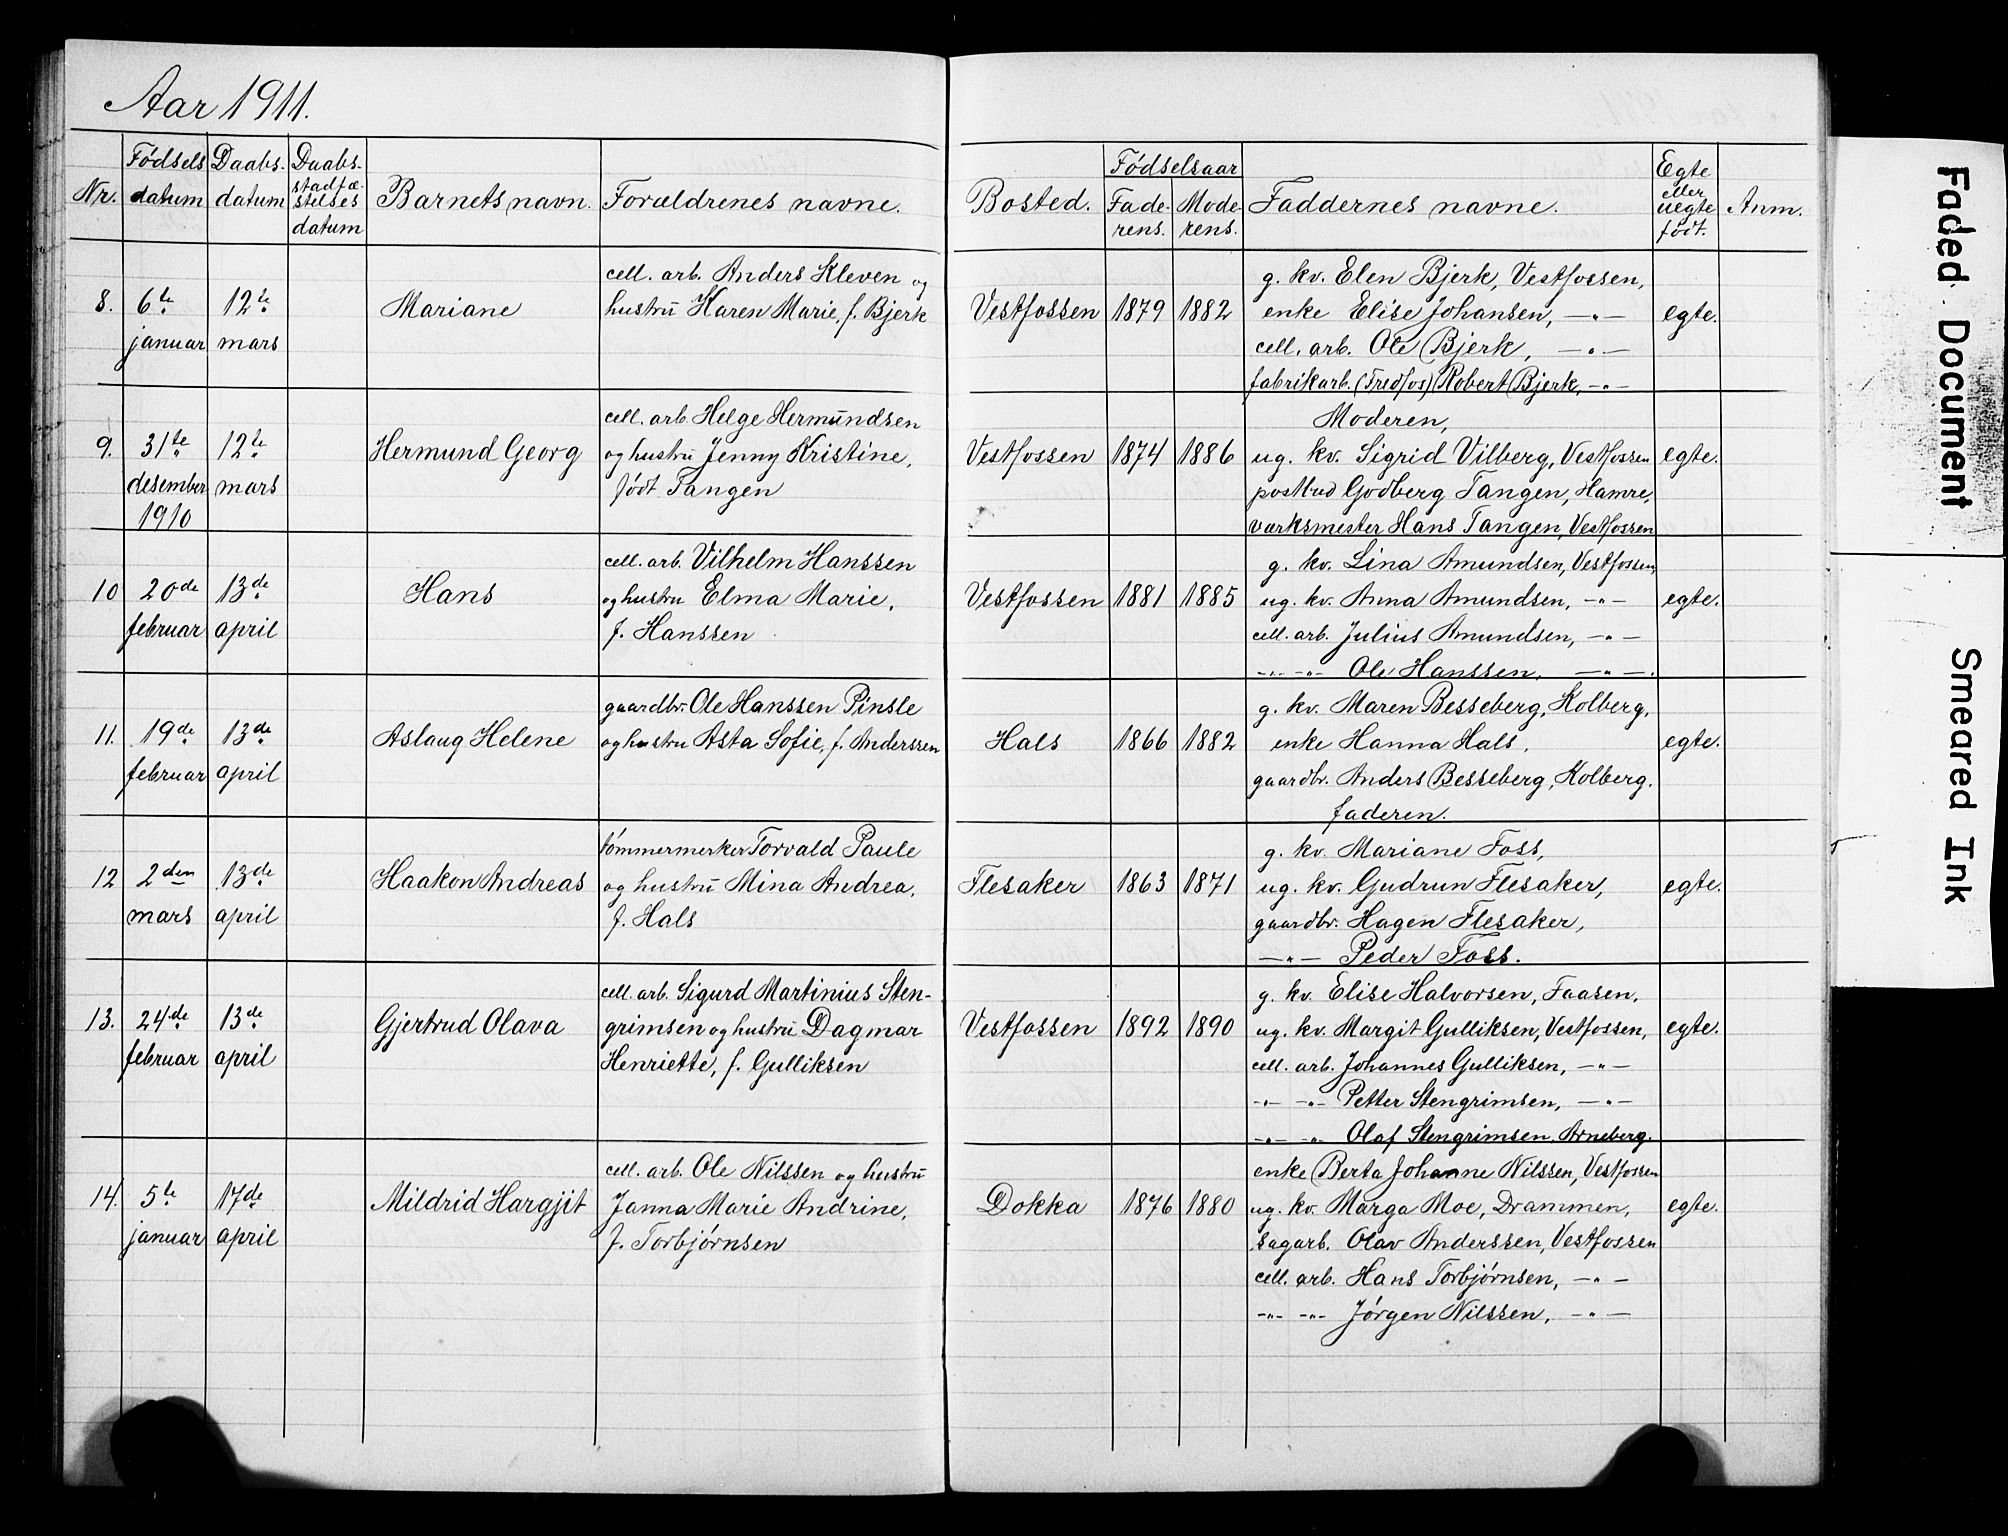 Aar 1911.
Nr. Fødsels datum Daabs- datum Daabs- stadfæ- stelses datum Barnets navn. Forældrenes navne. Bosted. Fødselsaar Fade- rens. Mode- rens. Faddernes navne. Egte eller uegte født. Anm.
8. 6te januar 12te mars Mariane
cell. arb. Anders Kleven og
hustru Karen Marie, f. Bjerk
Vestfossen 1879 1882
g. kv. Elen Bjerk, Vestfossen,
enke Elise Johansen, —"—
cell. arb. Ole Bjerk, —"—
fabrikarb. (Fredfos) Robert Bjerk, —"—
egte.
9. 31te desember 1910 12te mars Hermund Georg
cell. arb. Helge Hermundsen
og hustru Jenny Kristine,
født Tangen
Vestfossen 1874 1886
Moderen,
ug. kv. Sigrid Vilberg, Vestfossen
postbud Godberg Tangen, Hamre,
værksmester Hans Tangen, Vestfossen
egte.
10 20de februar 13de april Hans
cell. arb. Vilhelm Hanssen
og hustru Elma Marie,
f. Hanssen
Vestfossen 1881 1885
g. kv. Lina Amundsen, Vestfossen,
ug. kv. Anna Amundsen, —"—
cell. arb. Julius Amundsen, —"—
—"— —"— Ole Hanssen, —"—.
egte.
11. 19de februar 13de april Aslaug Helene
gaardbr. Ole Hanssen Pinsle
og hustru Asta Sofie, f. Anderssen
Hals 1866 1882
g. kv. Maren Besseberg, Kolberg,
enke Hanna Hals,
gaardbr. Anders Besseberg, Kolberg.
faderen.
egte.
12 2den mars 13de april Haakon Andreas
tømmermerker Torvald Paule
og hustru Mina Andrea,
f. Hals
Flesaker 1863 1871
g. kv. Mariane Foss,
ug. kv. Gudrun Flesaker,
gaardbr. Hagen Flesaker,
—"— Peder Foss.
egte.
13. 24de februar 13de april Gjertrud Olava
cell. arb. Sigurd Martinius Sten-
grimsen og hustru Dagmar
Henriette, f. Gulliksen
Vestfossen 1892 1890
g. kv. Elise Halvorsen, Faasen,
ug. kv. Margit Gulliksen, Vestfossen,
cell. arb. Johannes Gulliksen, —"—
—"— —"— Petter Stengrimsen, —"—
—"— —"— Olaf Stengrimsen, Arneberg.
egte.
14. 5te januar 17de april Mildrid Hargjit
cell. arb. Ole Nilssen og hustru
Janna Marie Andrine,
f. Torbjørnsen
Dokka 1876 1880
enke Berta Johanne Nilssen, Vestfossen
ug. kv. Marga Moe, Drammen,
sagarb. Olav Anderssen, Vestfossen
cell. arb. Hans Torbjørnsen, —"—
—"— —"— Jørgen Nilssen, —"—
egte.
Faded Document
Smeared Ink